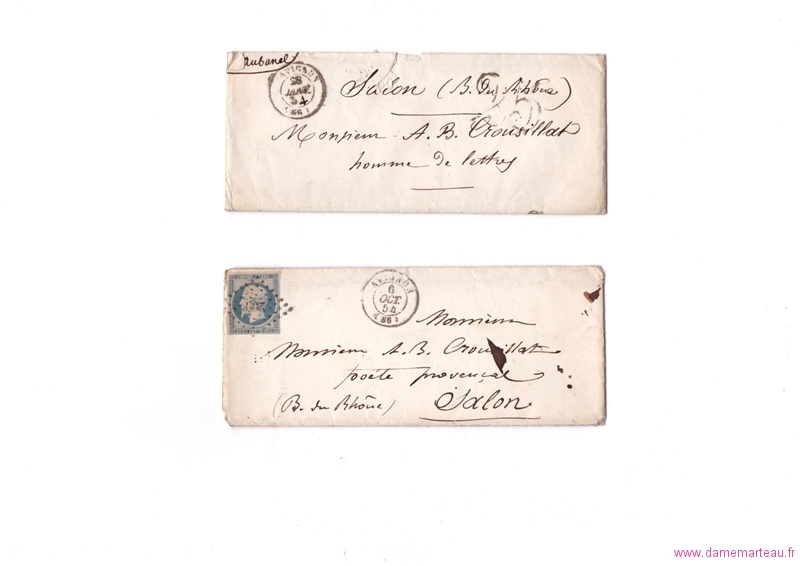 Aubanel
AVIGNON
(86)
Salon (B. du Rhône)
25
Monsieur A. B. Crousillat
homme de lettres
AVIGNON
6
OCT.
54
(86)
Monsieur
Monsieur A. B. Crousillat
poète provençal
(B. du Rhône) Salon
www.damemarteau.fr